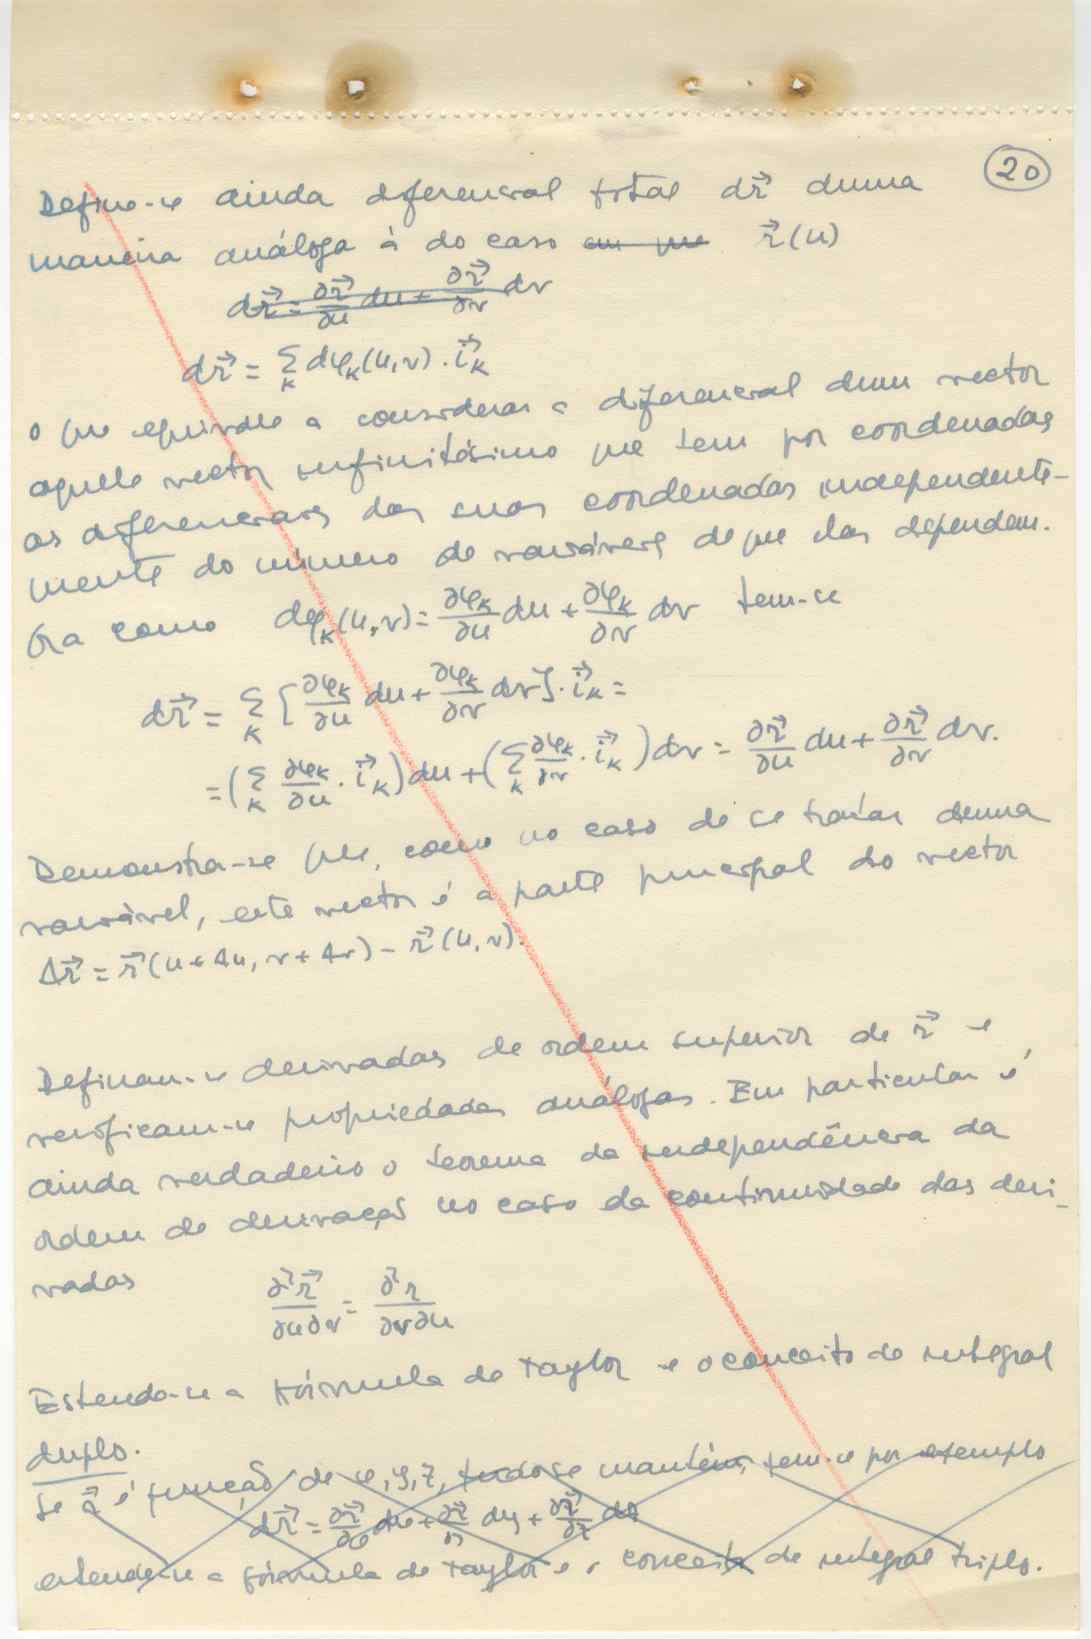 20
Define-se ainda diferencial total d\vec{r} duma
maneira análoga à do caso em que \vec{r}(u)
d\vec{r} = ∂\vec{r}/∂u du + ∂\vec{r}/∂v dv
d\vec{r} = Σ_k dφ_k(u,v) . \vec{i}_k
o que equivale a considerar a diferencial dum vector
aquele vector infinitésimo que tem por coordenadas
as diferenciais das suas coordenadas independente-
mente do número de variáveis de que elas dependem.
Ora como dφ_k(u,v) = ∂φ_k/∂u du + ∂φ_k/∂v dv tem-se
d\vec{r} = Σ_k [∂φ_k/∂u du + ∂φ_k/∂v dv] . \vec{i}_k =
= (Σ_k ∂φ_k/∂u . \vec{i}_k) du + (Σ_k ∂φ_k/∂v . \vec{i}_k) dv = ∂\vec{r}/∂u du + ∂\vec{r}/∂v dv.
Demonstra-se que, como no caso de se tratar duma
variável, este vector é a parte principal do vector
Δ\vec{r} = \vec{r}(u+Δu, v+Δv) - \vec{r}(u,v).
Definam-se derivadas de ordem superior de \vec{r} e
verificam-se propriedades análogas. Em particular é
ainda verdadeiro o teorema da independência da
ordem de derivação no caso da continuidade das deri-
vadas ∂²\vec{r}/∂u∂v = ∂²r/∂v∂u
Estende-se a fórmula de Taylor e o conceito de integral
duplo.
Se \vec{r} é função de x, y, z, tudo se mantém, tem-se por exemplo
d\vec{r} = ∂\vec{r}/∂x dx + ∂\vec{r}/∂y dy + ∂\vec{r}/∂z dz
estende-se a fórmula de Taylor e o conceito de integral triplo.